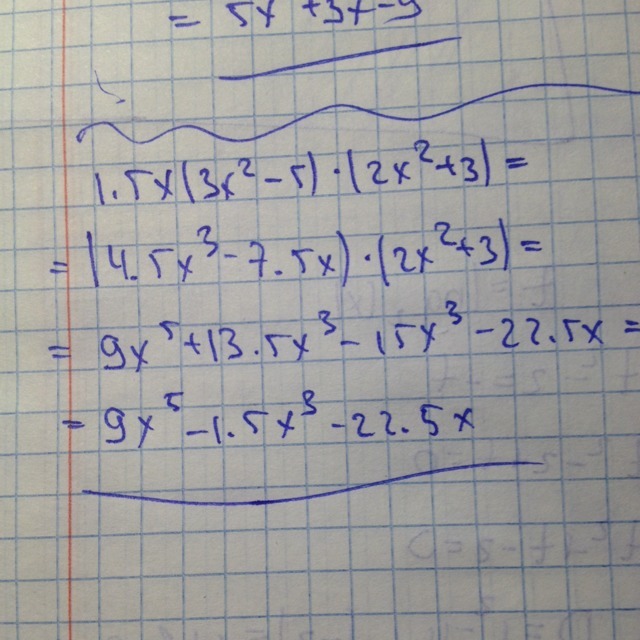 = 5x +3x-9
1.5x(3x²-5)·(2x²+3)=
=(4.5x³-7.5x)·(2x²+3)=
= 9x⁵+13.5x³-15x³-22.5x=
= 9x⁵-1.5x³-22.5x